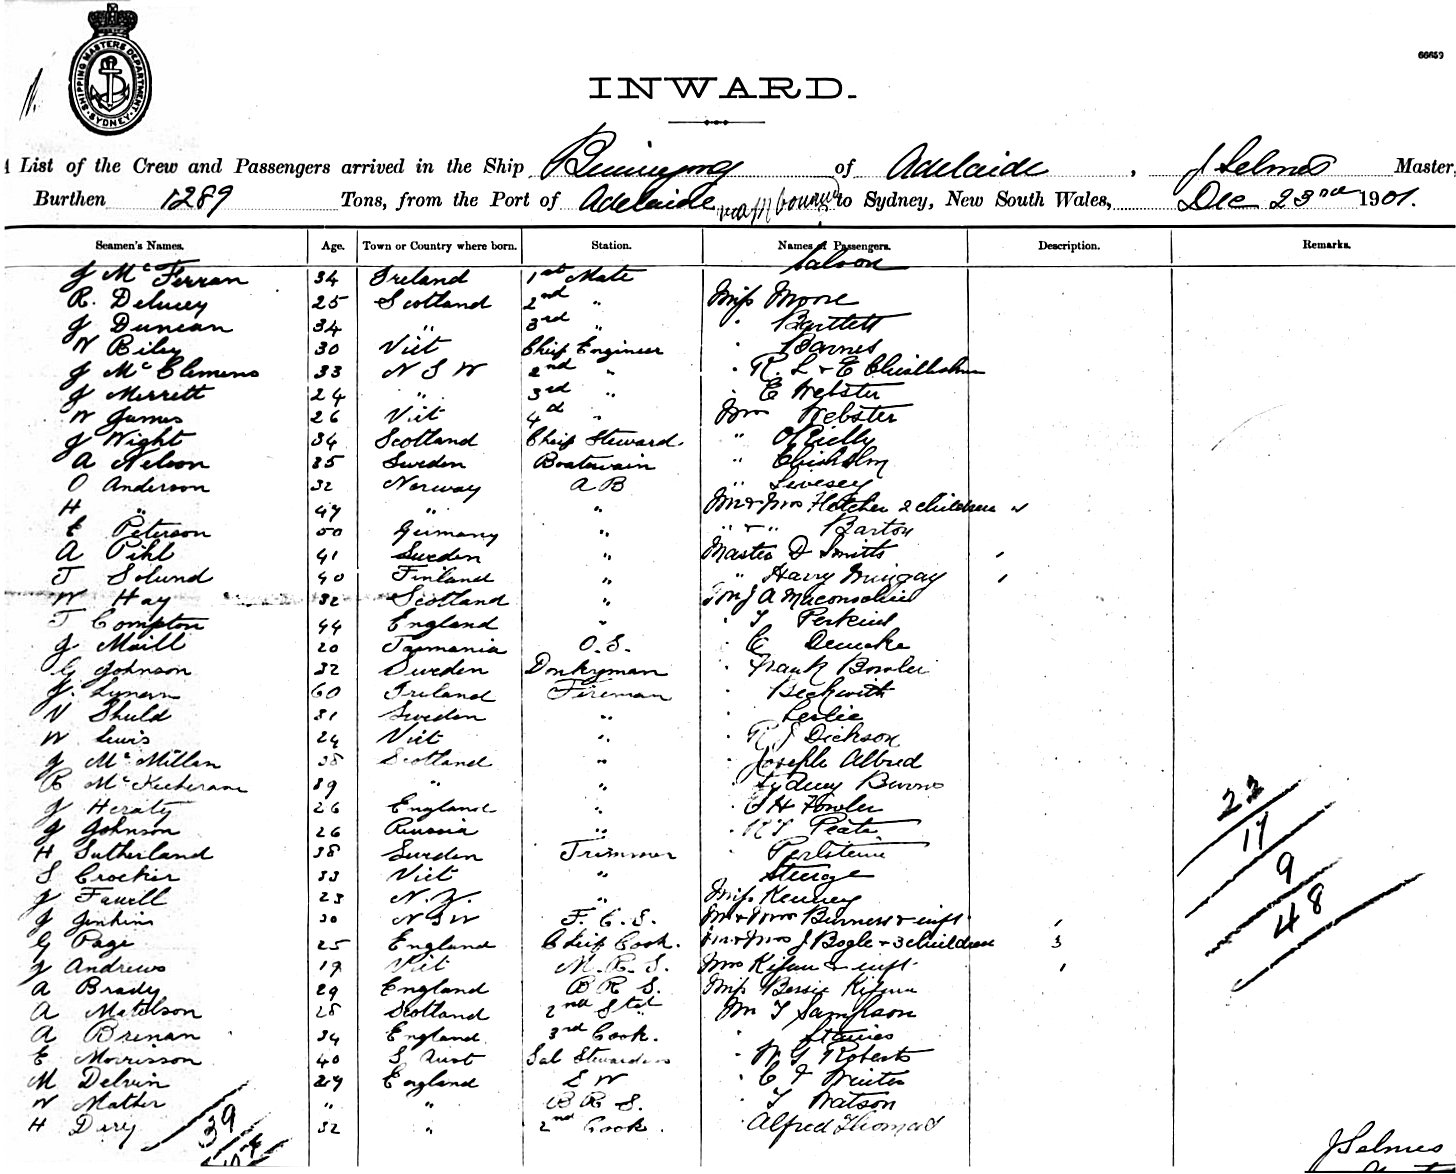 SHIPPING MASTERS DEPARTMENT
SYDNEY
66659
INWARD.
List of the Crew and Passengers arrived in the Ship of Adelaide, J Selmes Master,
Burthen 1289 Tons, from the Port of Adelaide via bound to Sydney, New South Wales, Dec 23rd 1901.
Seamen's Names. Age. Town or Country where born. Station. Names of Passengers. Description. Remarks.
Saloon
J McFerran 34 Ireland 1st Mate
R. Delucey 25 Scotland 2nd " Miss Moore
J Duncan 34 " 3rd " " Bartlett
W Biley 30 Vict Chief Engineer " Barnes
J McClemens 33 N S W 2nd " " R. L & E Chisholm
J Merrett 24 " 3rd " " E Webster
W James 26 Vict 4d " Mrs Webster
J Wight 34 Scotland Chief Steward. " O'Reilly
A Nelson 35 Sweden Boatswain " Chisholm
O Anderson 32 Norway A B " Livesey
H " 47 " " Mr & Mrs Fletcher 2 children
E Peterson 50 Germany " " & " Barton
A Pihl 41 Sweden " Master D Smith
T Solund 40 Finland " " Harry
W Hay 32 Scotland " J A Maconochie
T Compton 44 England " T Perkins
J Maill 20 Tasmania O.S. C
G Johnson 32 Sweden Donkeyman Frank Bowler
J. Lynern 60 Ireland Fireman Beckwith
V Shuld 31 Sweden " Leslie
W Lewis 24 Vict " Dickson
J McMillan 38 Scotland " Joseph Albred
R 39 " " Sydney Burns
J Heraty 26 England " H Fowler
J Johnson 26 Russia " Peate
H Sutherland 38 Sweden Trimmer Perlstein
S Crocker 33 Vict " Sturge
J Fawell 23 N.Z. " Miss Kenney
J Jenkins 30 N S W F. C. S. Mr & Mrs Burness & inft
G Page 25 England Chief Cook. Mr & Mrs J Bogle & 3 children 3
J Andrews 19 Vict M. R. S. Mrs & inft
A Brady 29 England B R S. Miss Bessie
A Matelson 28 Scotland 2nd Std Mr T Sampson
A Brenan 34 England 3rd Cook. Staines
E Morrisson 40 S Aust Sal Stewardess W G Roberts
M Delvin 27 England S W C F Winter
W Mather " " B R S. T Watson
H Dery 32 " 2nd Cook. Alfred Thomas
22
17
9
48
39
J Selmes